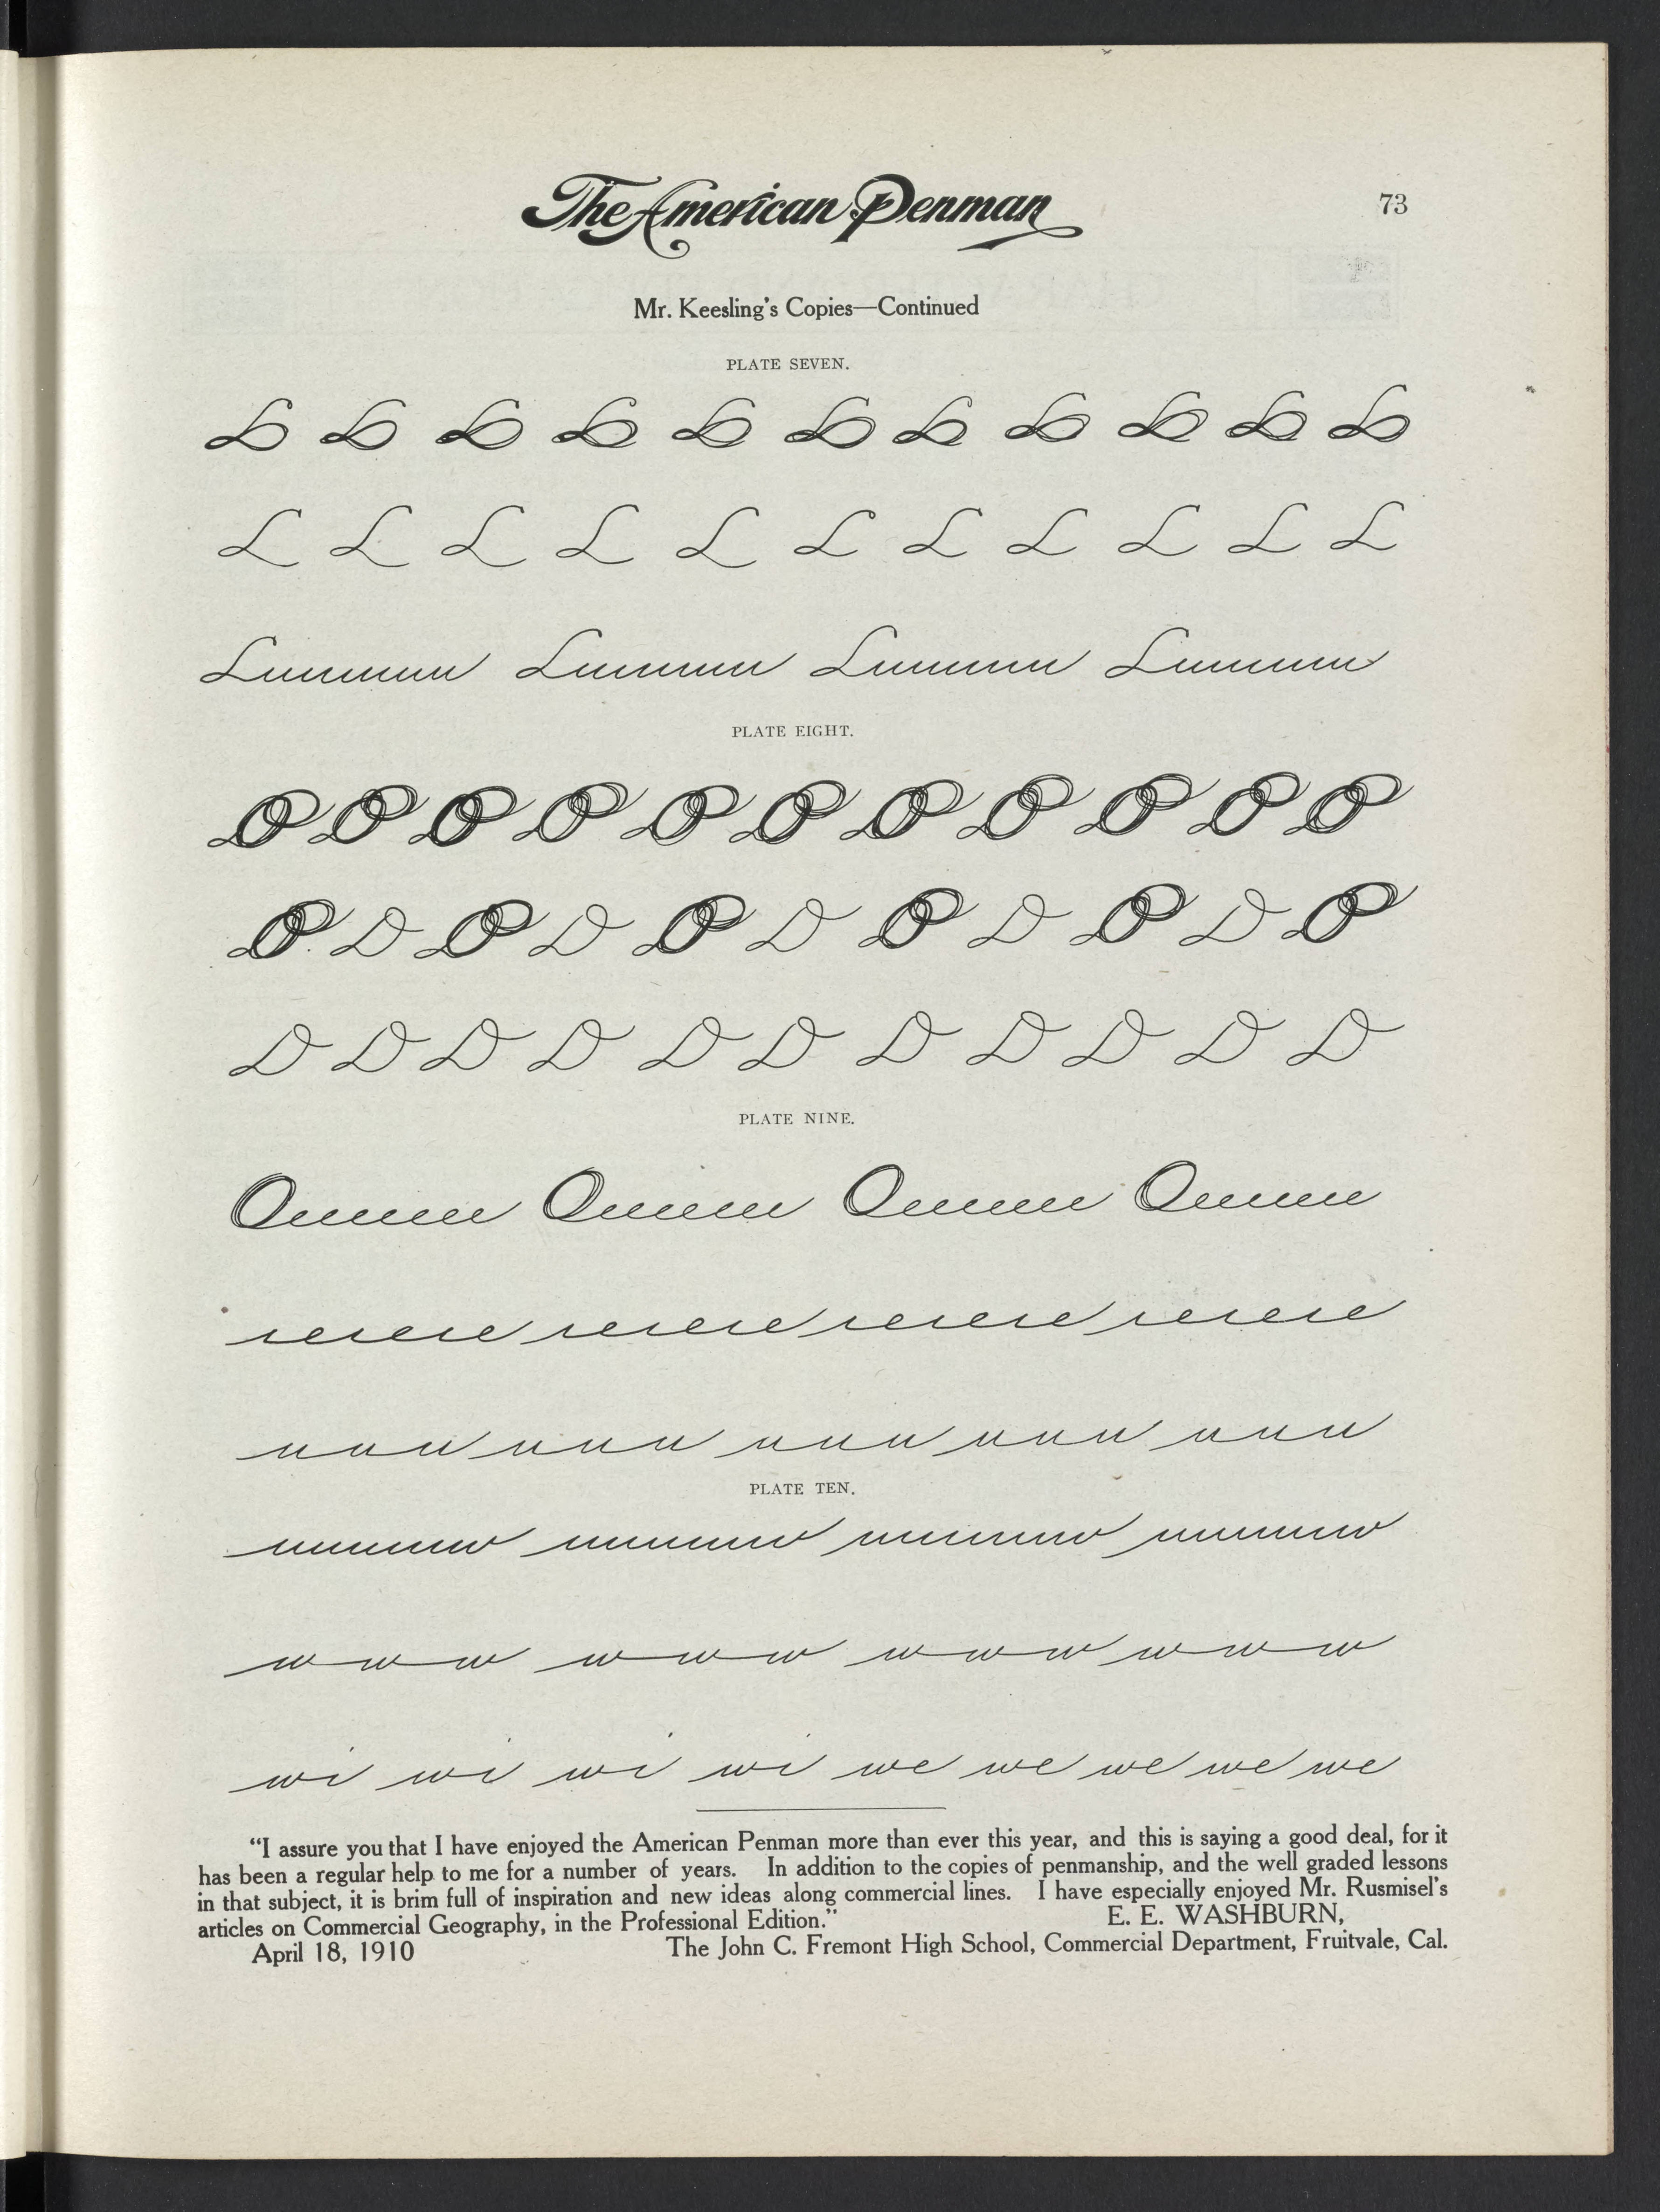 The American Penman
73
Mr. Keesling's Copies—Continued
PLATE SEVEN.
L L L L L L L L L L L
PLATE EIGHT.
D D D D D D D D D D D
PLATE NINE.
PLATE TEN.
w w w w w w w w w w w w
wi wi wi wi we we we we we
"I assure you that I have enjoyed the American Penman more than ever this year, and this is saying a good deal, for it
has been a regular help to me for a number of years. In addition to the copies of penmanship, and the well graded lessons
in that subject, it is brim full of inspiration and new ideas along commercial lines. I have especially enjoyed Mr. Rusmisel's
articles on Commercial Geography, in the Professional Edition."
E. E. WASHBURN,
April 18, 1910 The John C. Fremont High School, Commercial Department, Fruitvale, Cal.